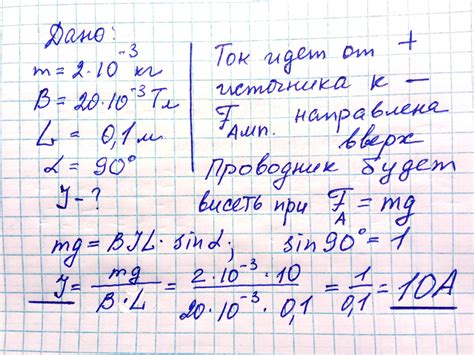 Дано:
m = 2·10⁻³ кг
B = 20·10⁻³ Тл
L = 0,1 м
α = 90°
I - ?
Ток идет от +
источника к –
F Амп. направлена
вверх
Проводник будет
висеть при F_A = mg
mg = BIL·sinα; sin90° = 1
I = mg / B·L = 2·10⁻³·10 / 20·10⁻³·0,1 = 1 / 0,1 = 10А